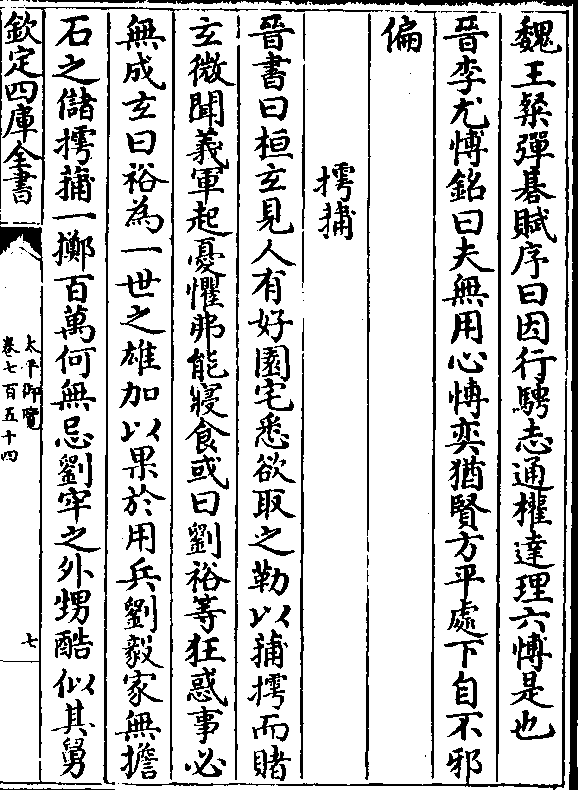 魏王粲彈棊賦序曰因行騁志通權達理六愽是也
晉李尤愽銘曰夫無用心愽奕猶賢方平處下自不邪
偏
摴蒱
晉書曰桓玄見人有好園宅悉欲取之勒以蒱摴而賭
玄微聞義軍起憂懼弗能寢食或曰劉裕等狂惑事必
無成玄曰裕為一世之雄加以果於用兵劉毅家無擔
石之儲摴蒱一擲百萬何無忌劉牢之外甥酷似其舅
欽定四庫全書
太平御覽
卷七百五十四
七